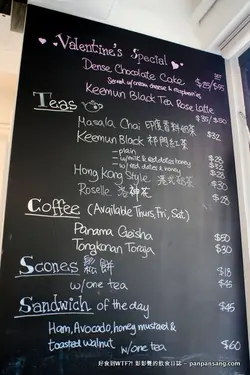 Valentine's Special
Dense Chocolate Cake $25/$55
Served w/cream cheese & raspberries
Keemun Black Tea Rose Latte
$30/$50
Teas
Masala Chai 印度香料奶茶 $32
Keemun Black 祁門紅茶
- plain $28
- w/milk & red dates honey $32
- w/ red dates & honey $32
Hong Kong Style 港式奶茶 $28
Roselle 洛神花 $28
Coffee (Available Thurs, Fri, Sat)
Panama Geisha $50
Tongkonan Toraja $30
Scones 鬆餅 $18
w/one tea $45
Sandwich of the day $45
Ham, Avocado, honey mustard &
toasted walnut w/one tea $60
好食到WTF?! 彭彭覺的飲食日誌 - panpansang.com